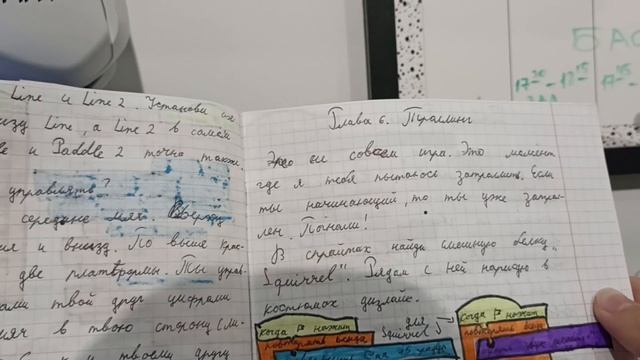 Line и Line 2. Установи их
низу Line, а Line 2 в самом
е и Paddle 2 точно также.
управлять?
середине мяч. Вверху
ия и внизу. По выше крас-
две платформы. Ты управ-
ами твой друг цифрами
мяч в твою сторону (ли-
и твоему другу
Глава 6. Троллинг
Это не совсем игра. Это момент
где я тебя пытаюсь затроллить. Если
ты начинающий, то ты уже затрол-
лен. Погнали!
В спрайтах найди смешную белку
"Squirrel". Рядом с ней нарисую в
костюмах дизлайк.
когда нажат
повторять всегда
для
Squirrel
когда нажат
повторять всегда
БАС
17-